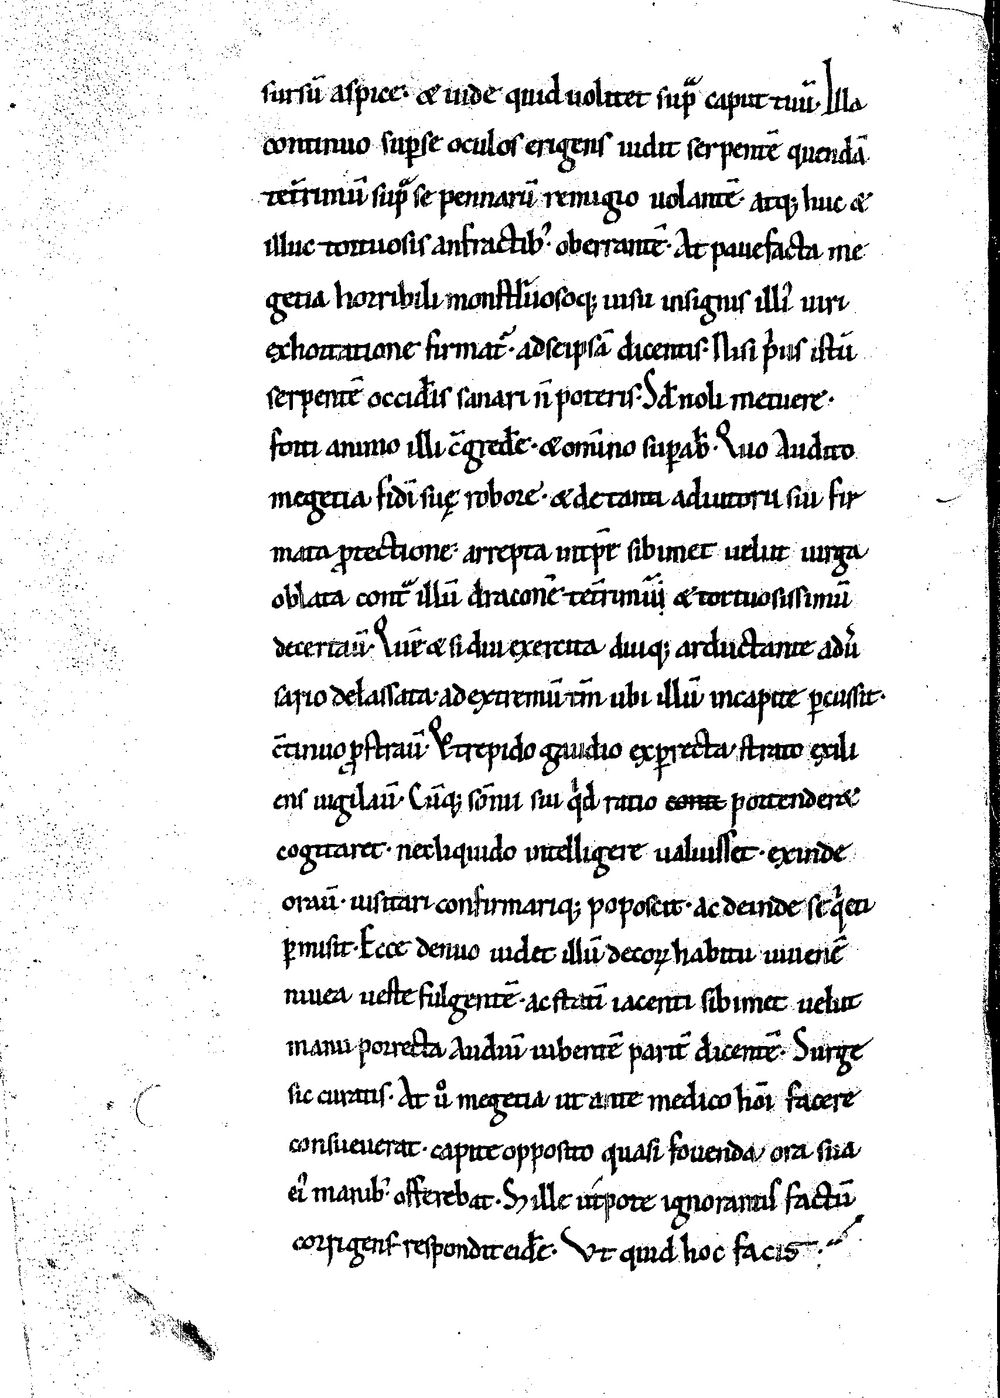 sursū aspice· & uide quid uolitet supͣ caput tuū· Illa
continuo sup̱se oculos erigens uidit serpentē quendā
tet̄rimū supͣ se pennarū remigio uolantē· atq; huc &
illuc tortuosis anfractib᾽· oberrantē· At pauefacta me
getia horribili monstruosoq; uisu insignis illi᾽ uiri
exhortatione firmat᾽· adseipsā dicentis· Nisi p̄us istū
serpentē occid̄is sanari n̄ poteris· Sꝫ noli metuere·
forti animo illi c̄gred̄e· & om̄ino sup̱ab᾽· Quo Audito
megetia fidī suę robore· & de tanti adiutorii sui fir
mata ꝓtectione· arrepta intp̄r̄ sibimet uelut uirga
oblata contͣ illū draconē tet̄rimū & tortuosissimū
decertaū· Quē & si diu exercita diuq; arductante adū
sario delassata· ad extremū tm̄ ubi illū in capite p̱cussit·
c̄tinuo ꝓstraū· Et trepido gaudio exp̱recta strato exili
ens uigilaū· Cūq; sōnii sui qd ratio conte portender&
cogitaret· nec liquido intelligere ualuisset· exinde
oraū· uisitari confirmariq; poposcit· ac deinde se q̇eti
p̱misit· Ecce denuo uidet illū decoꝝ habitu iuuenē
niuea ueste fulgentē· ac statī iacenti sibimet uelut
manu porrecta Audiū iubentē parit̄ dicentē· Surge
sic curatis· At uͦ megetia ut ante medico hōi facere
consueuerat· capite opposito quasi fouenda ora sua
ei᾽ manib᾽ offerebat· Sꝫ ille utpote ignorantis factū
corrigens respondit eid̄e· Vt quid hoc facis·